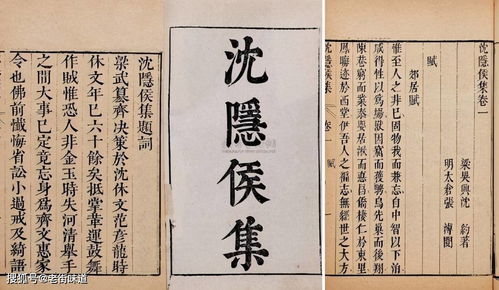 沈隱侯集題詞
梁武篡齊決策於沈休文范彥龍時
休文年已六十餘矣抵掌革運鼓舞
作賊惟恐人非金玉時失河清舉手
之間大事已定竟忘身為齊文惠家
令也佛前懺悔省訟小過戒及綺語
沈隱侯集
沈隱侯集卷一
梁吳興沈約著
明太倉張溥閱
賦
郊居賦
惟至人之非已固物我而兼忘自中智以下洎
咸得性以為場獸因窟而獲騁鳥先巢而後翔
陳巷窮而業泰嬰居湫而德昌僑棲仁於東里
鳳晦迹於西堂伊吾人之褊志無經世之大方
沈隱侯集 卷一 賦
搜狐号@老街味道